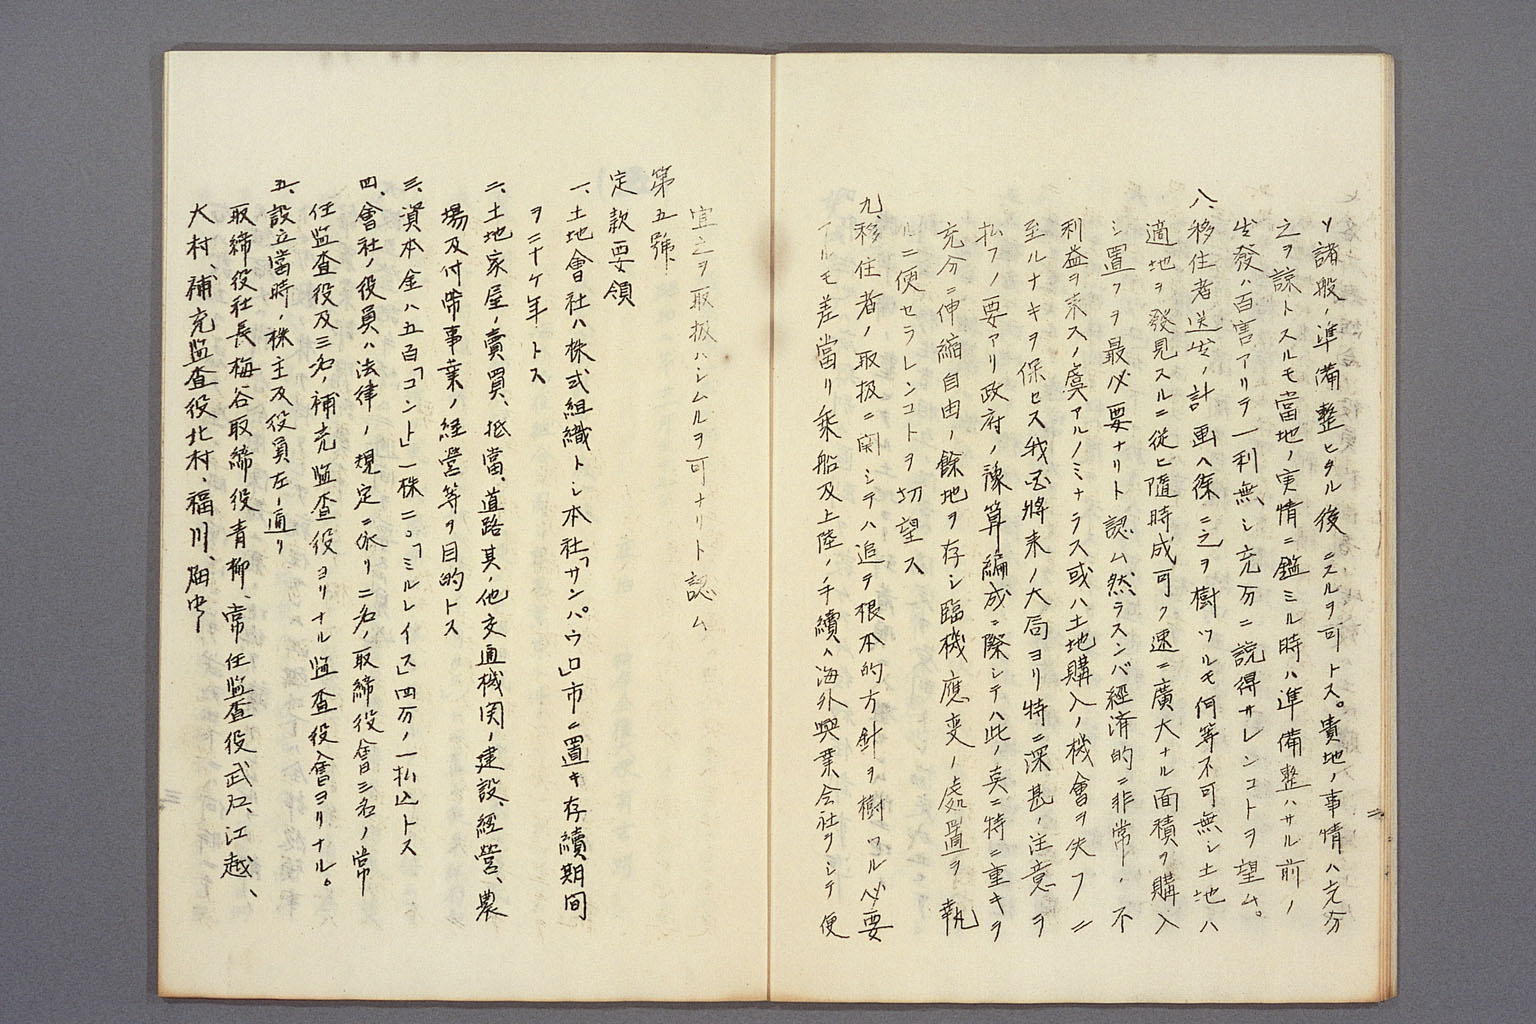 ソ諸般ノ準備整ヒタル後ニスルヲ可トス。貴地ノ事情ハ充分
之ヲ諒トスルモ當地ノ実情ニ鑑ミル時ハ準備整ハサル前ノ
出發ハ百害アリテ一利無シ充万ニ説得サレンコトヲ望ム。
八、移住者送出ノ計画ヘ徐ニ之ヲ樹ツルモ何等不可無シ土地ハ
適地ヲ發見スルニ従ヒ隨時成可ク速ニ廣大ナル面積ヲ購入
シ置クヲ最必要ナリト認ム然ラスンバ經済的ニ非常ノ不
利益ヲ来スノ虞アルノミナラス或ハ土地購入ノ機會ヲ失フニ
至ルナキヲ保セス我国将来ノ大局ヨリ特ニ深甚ノ注意ヲ
払フノ要アリ政府ノ豫算編成ニ際シテハ此ノ奌ニ特ニ重キヲ
充分ニ伸縮自由ノ餘地ヲ存シ臨機應変ノ處置ヲ執
ルニ便セラレンコトヲ切望ス
九、移住者ノ取扱ニ関シテハ追テ根本的方針ヲ樹ツル必要
アルモ差當リ乗船及上陸ノ手續ヘ海外興業会社ヲシテ便
宜之ヲ取扱ハシムルヲ可ナリト認ム
第五號
定款要領
一、土地會社ハ株式組織トシ本社「サンパウロ」市ニ置キ存續期间
ヲ二十ケ年トス
二、土地家屋ノ賣買、抵當、道路其ノ他交通機関ノ建設、經營、農
場及付帯事業ノ経営等ヲ目的トス
三、資本金ハ五百「コント」一株二〇「ミルレイス」四万ノ一払込トス
四、會社ノ役員ハ法律ノ規定ニ依リ二名ノ取締役會三名ノ常
任監査役及三名ノ補充監査役ヨリナル監査役會ヨリナル。
五、設立當時ノ株主及役員左ノ通リ
取締役社長梅谷取締役青柳、常任監査役武石、江越、
大村、補充監査役北村、福川、畑中